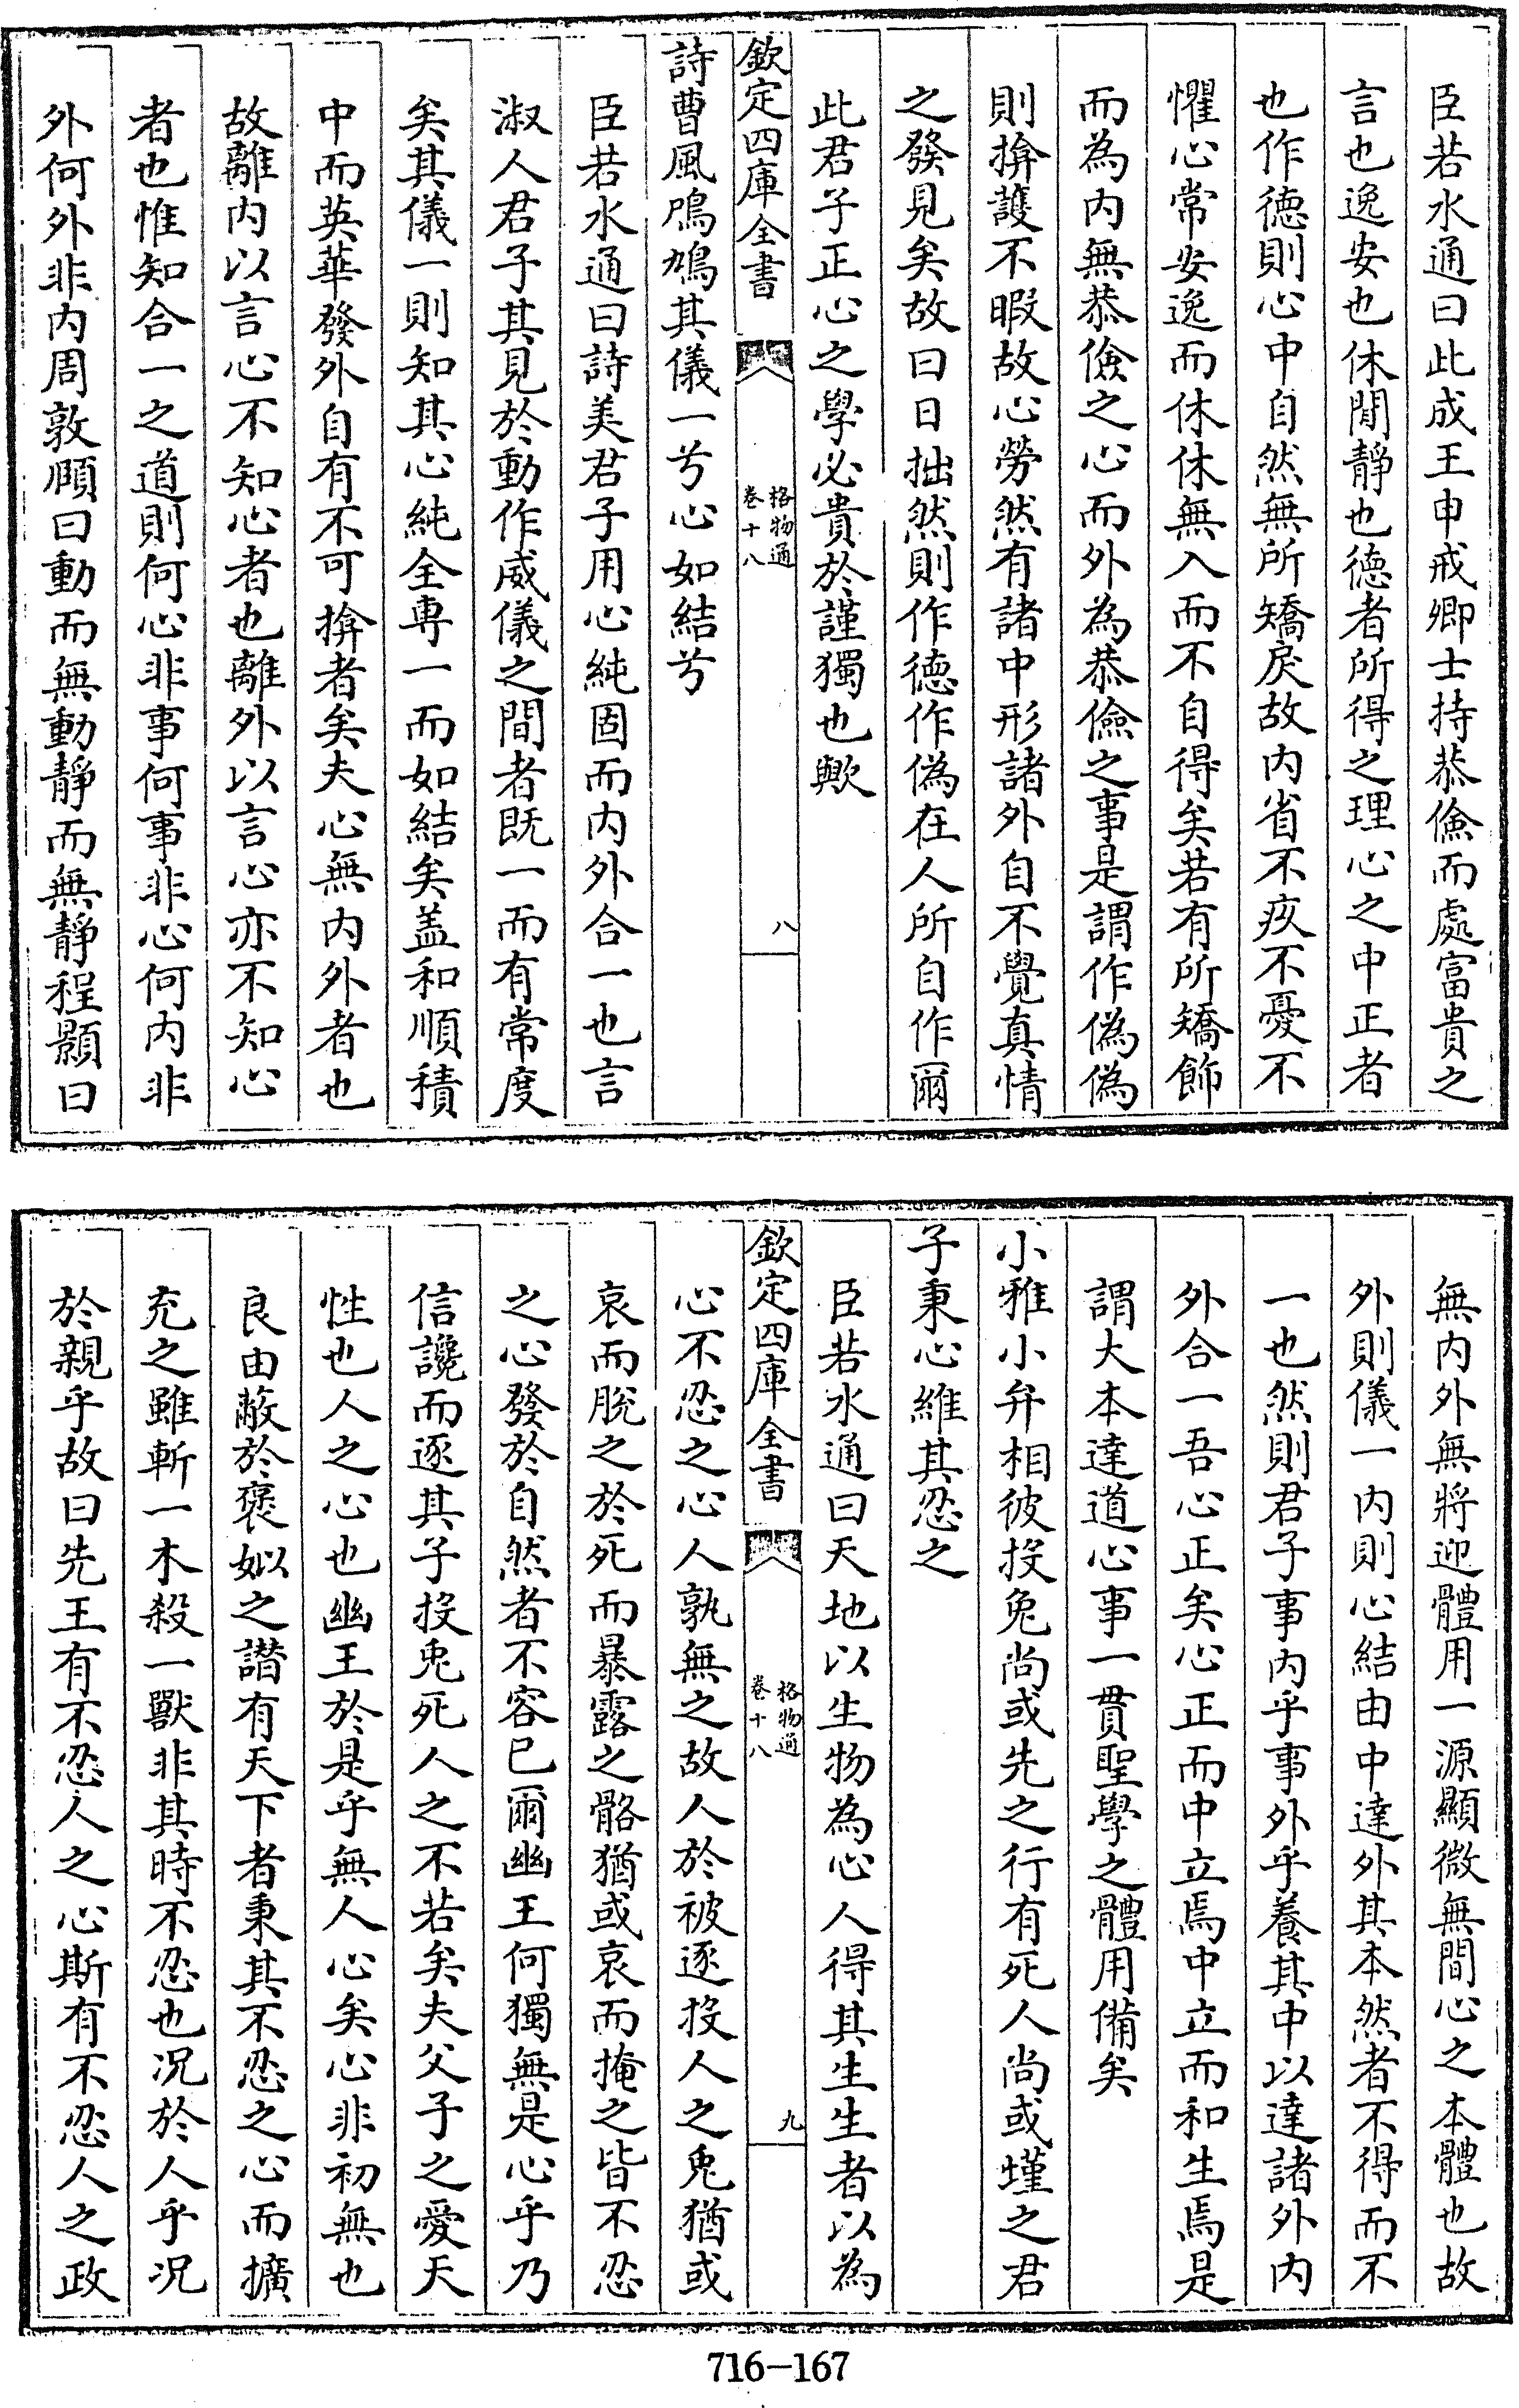 臣若水通曰此成王申戒卿士持恭儉而處富貴之
言也逸安也休閒靜也德者所得之理心之中正者
也作德則心中自然無所矯戾故內省不疚不憂不
懼心常安逸而休休無入而不自得矣若有所矯飾
而為內無恭儉之心而外為恭儉之事是謂作偽偽
則揜護不暇故心勞然有諸中形諸外自不覺真情
之發見矣故曰日拙然則作德作偽在人所自作爾
此君子正心之學必貴於謹獨也歟
欽定四庫全書
格物通
卷十八
八
詩曹風鳲鳩其儀一兮心如結兮
臣若水通曰詩美君子用心純固而內外合一也言
淑人君子其見於動作威儀之間者既一而有常度
矣其儀一則知其心純全專一而如結矣盖和順積
中而英華發外自有不可揜者矣夫心無內外者也
故離內以言心不知心者也離外以言心亦不知心
者也惟知合一之道則何心非事何事非心何內非
外何外非內周敦頤曰動而無動靜而無靜程顥曰
無內外無將迎體用一源顯微無間心之本體也故
外則儀一內則心結由中達外其本然者不得而不
一也然則君子事內乎事外乎養其中以達諸外內
外合一吾心正矣心正而中立焉中立而和生焉是
謂大本達道心事一貫聖學之體用備矣
小雅小弁相彼投兔尚或先之行有死人尚或墐之君
子秉心維其忍之
臣若水通曰天地以生物為心人得其生生者以為
欽定四庫全書
格物通
卷十八
九
心不忍之心人孰無之故人於被逐投人之兔猶或
哀而脫之於死而暴露之骼猶或哀而掩之皆不忍
之心發於自然者不容已爾幽王何獨無是心乎乃
信讒而逐其子投兔死人之不若矣夫父子之愛天
性也人之心也幽王於是乎無人心矣心非初無也
良由蔽於褒姒之譖有天下者秉其不忍之心而擴
充之雖斬一木殺一獸非其時不忍也况於人乎况
於親乎故曰先王有不忍人之心斯有不忍人之政
716-167